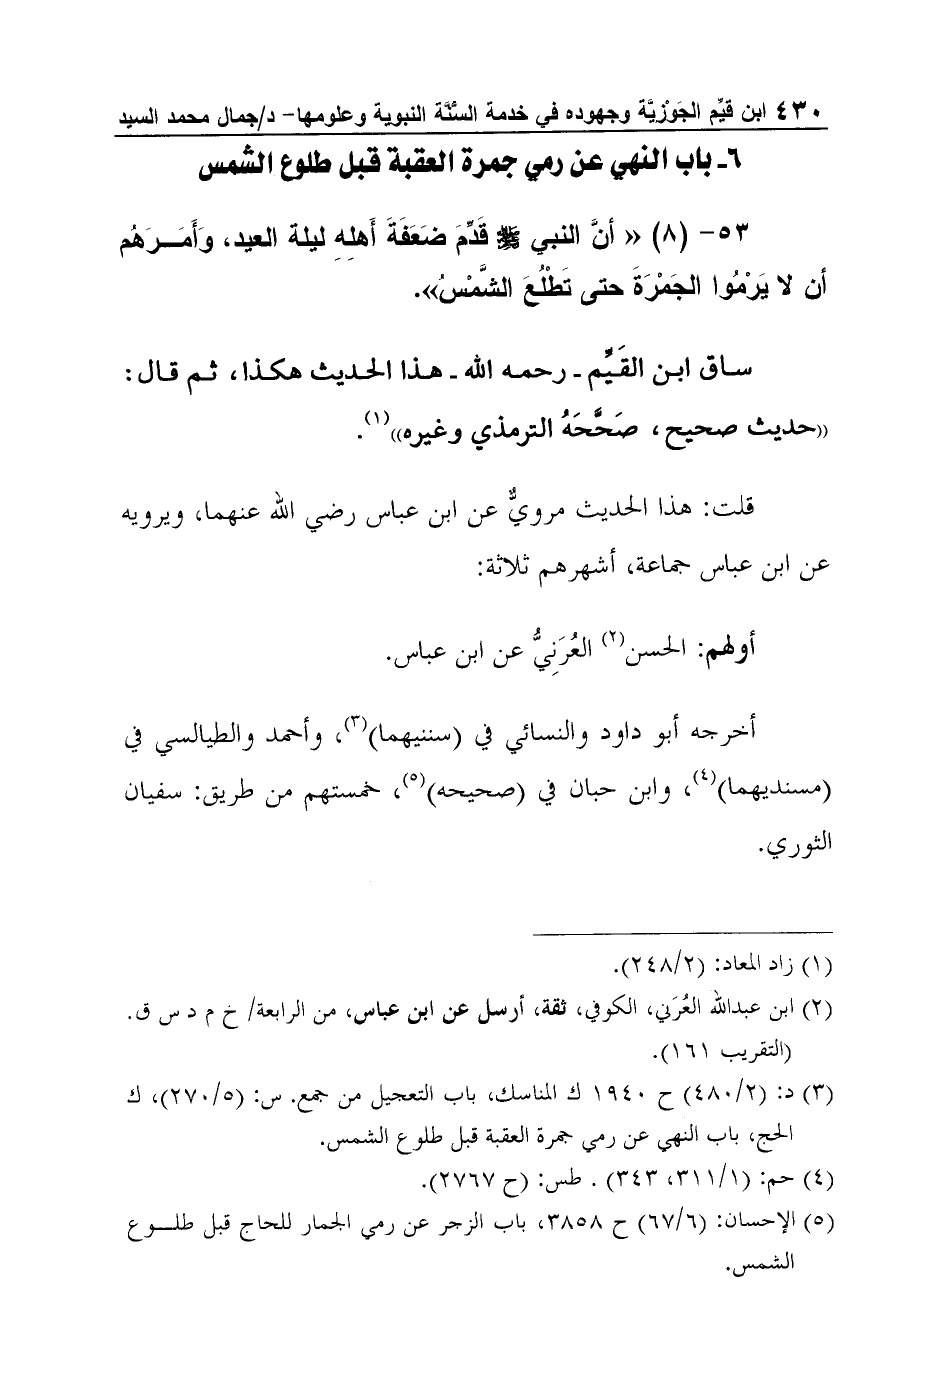 ٤٣٠ ابن قيِّم الجَوْزِيَّة وجهوده في خدمة السُّنَّة النبوية وعلومها- د/جمال محمد السيد
٦ـ باب النهي عن رمي جمرة العقبة قبل طلوع الشمس
٥٣- (٨) « أنَّ النبي ﷺ قَدَّمَ ضَعَفَةَ أَهلِهِ ليلة العيد، وَأَمَـرَهُم
أن لا يَرْمُوا الجَمْرَةَ حتى تَطْلُعَ الشَّمْسُ».
ساق ابن القَيِّم ـ رحمه الله ـ هذا الحديث هكذا، ثم قال:
«حديث صحيح، صَحَّحَهُ الترمذي وغيره»(١).
قلت: هذا الحديث مرويٌّ عن ابن عباس رضي الله عنهما، ويرويه
عن ابن عباس جماعة، أشهرهم ثلاثة:
أولهم: الحسن(٢) العُرَنِيُّ عن ابن عباس.
أخرجه أبو داود والنسائي في (سننيهما)(٣)، وأحمد والطيالسي في
(مسنديهما)(٤)، وابن حبان في (صحيحه)(٥)، خمستهم من طريق: سفيان
الثوري.
(١) زاد المعاد: (٢٤٨/٢).
(٢) ابن عبدالله العُرَني، الكوفي، ثقة، أرسل عن ابن عباس، من الرابعة/ خ م د س ق.
(التقريب ١٦١).
(٣) د: (٤٨٠/٢) ح ١٩٤٠ ك المناسك، باب التعجيل من جمع. س: (٢٧٠/٥)، ك
الحج، باب النهي عن رمي جمرة العقبة قبل طلوع الشمس.
(٤) حم: (٣١١/١، ٣٤٣) . طس: (ح ٢٧٦٧).
(٥) الإحسان: (٦٧/٦) ح ٣٨٥٨، باب الزجر عن رمي الجمار للحاج قبل طلـوع
الشمس.